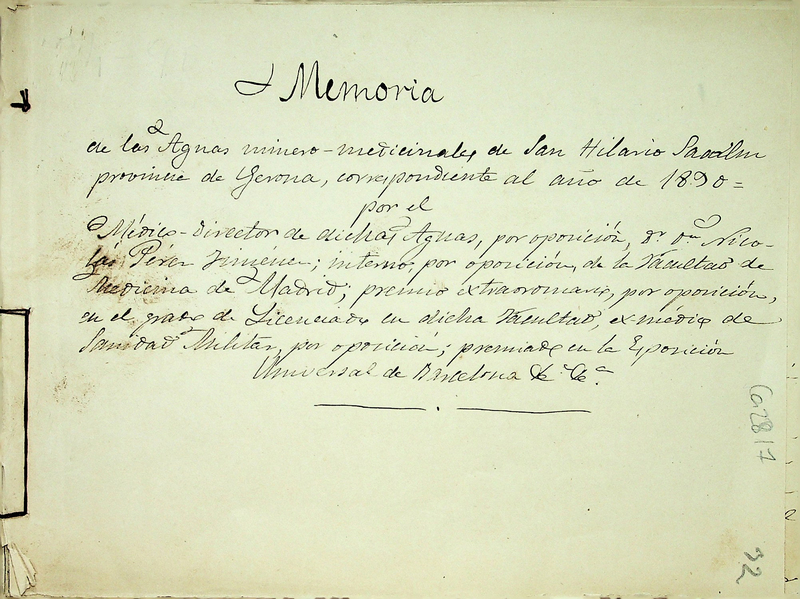 Memoria
de las Aguas minero-medicinales de San Hilario Sacalm
provincia de Gerona, correspondiente al año de 1890=
por el
Médico-Director de dichas Aguas, por oposición, Dr. Dn. Nico-
lás Pérez Jiménez; interno, por oposición, de la Facultad de
Medicina de Madrid; premio extraordinario, por oposición,
en el grado de Licenciado en dicha Facultad, ex-médico de
Sanidad Militar, por oposición; premiado en la Exposición
Universal de Barcelona &. &a.
Ca 2817
32